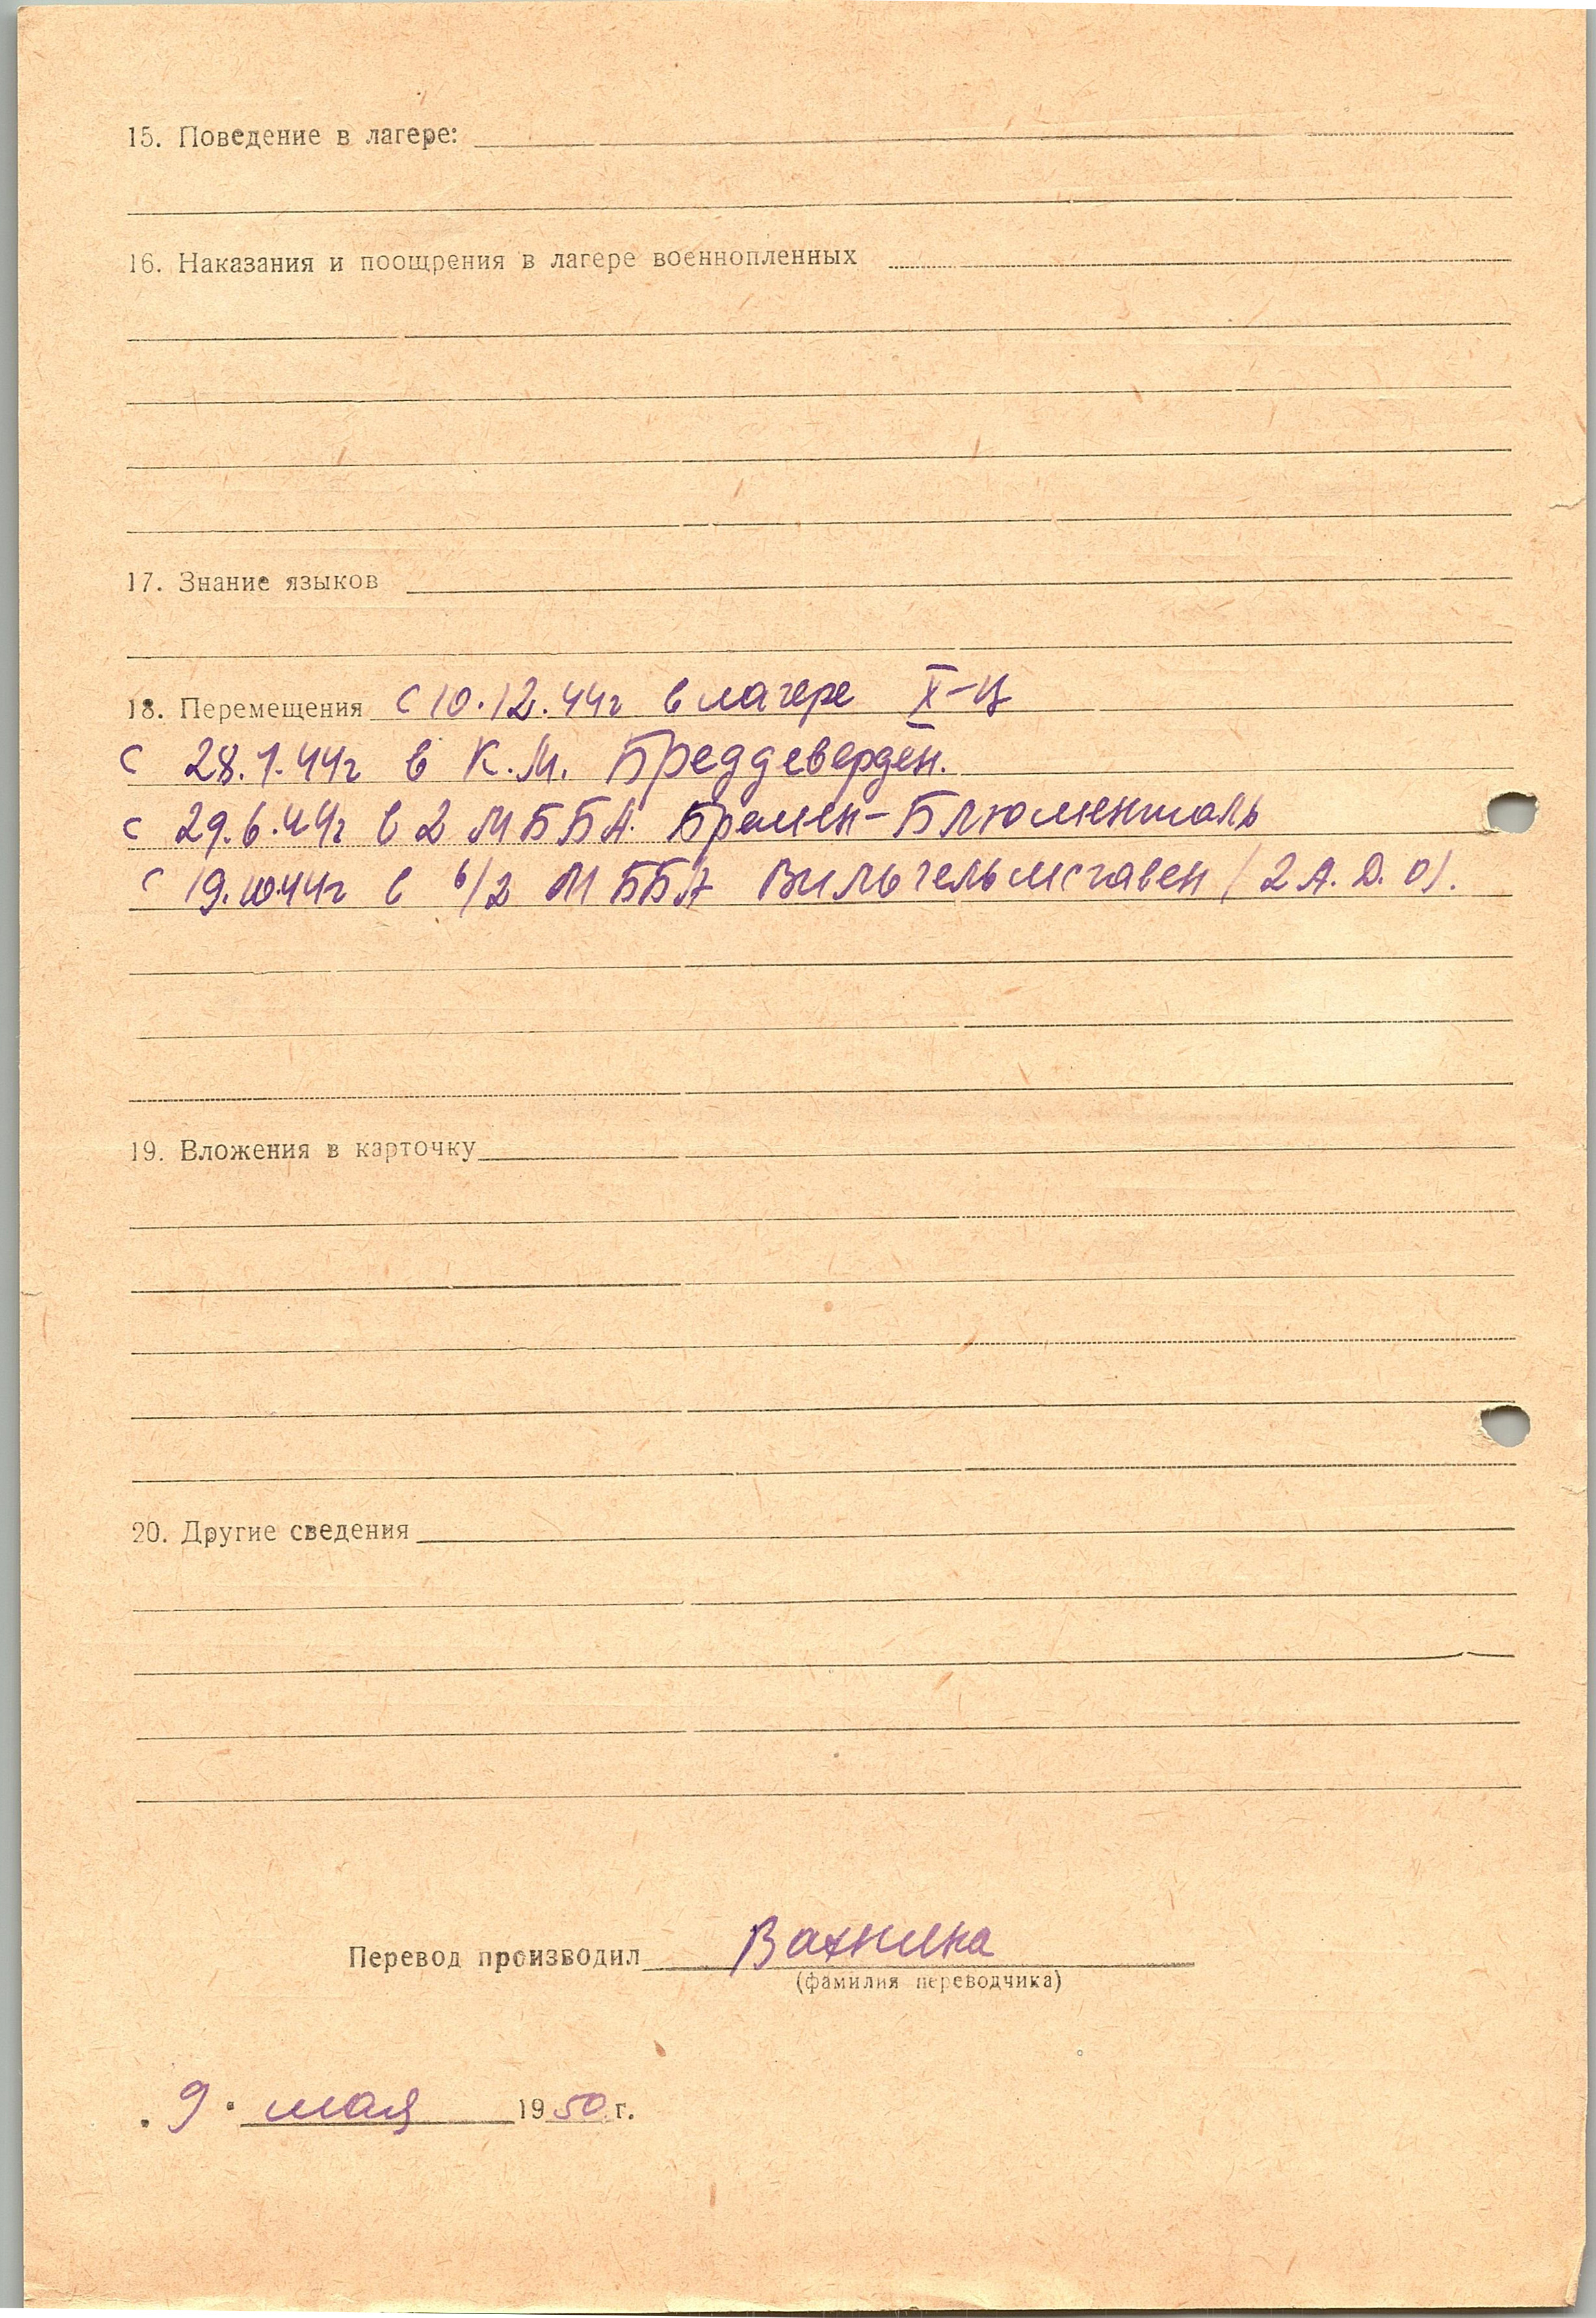 15. Поведение в лагере:
16. Наказания и поощрения в лагере военнопленных
17. Знание языков
18. Перемещения с 10.12.44г в лагере X-Ц
с 28.1.44г в К.М. Бреддеверден.
с 29.6.44г в 2 М Б Б А. Бремен-Блюменталь
с 19.10.44г в 6/2 М ББА Вильгельмсгавен (2 А. Д. О).
19. Вложения в карточку
20. Другие сведения
Перевод производил Вахнина
(фамилия переводчика)
„ 9 " мая 1950 г.